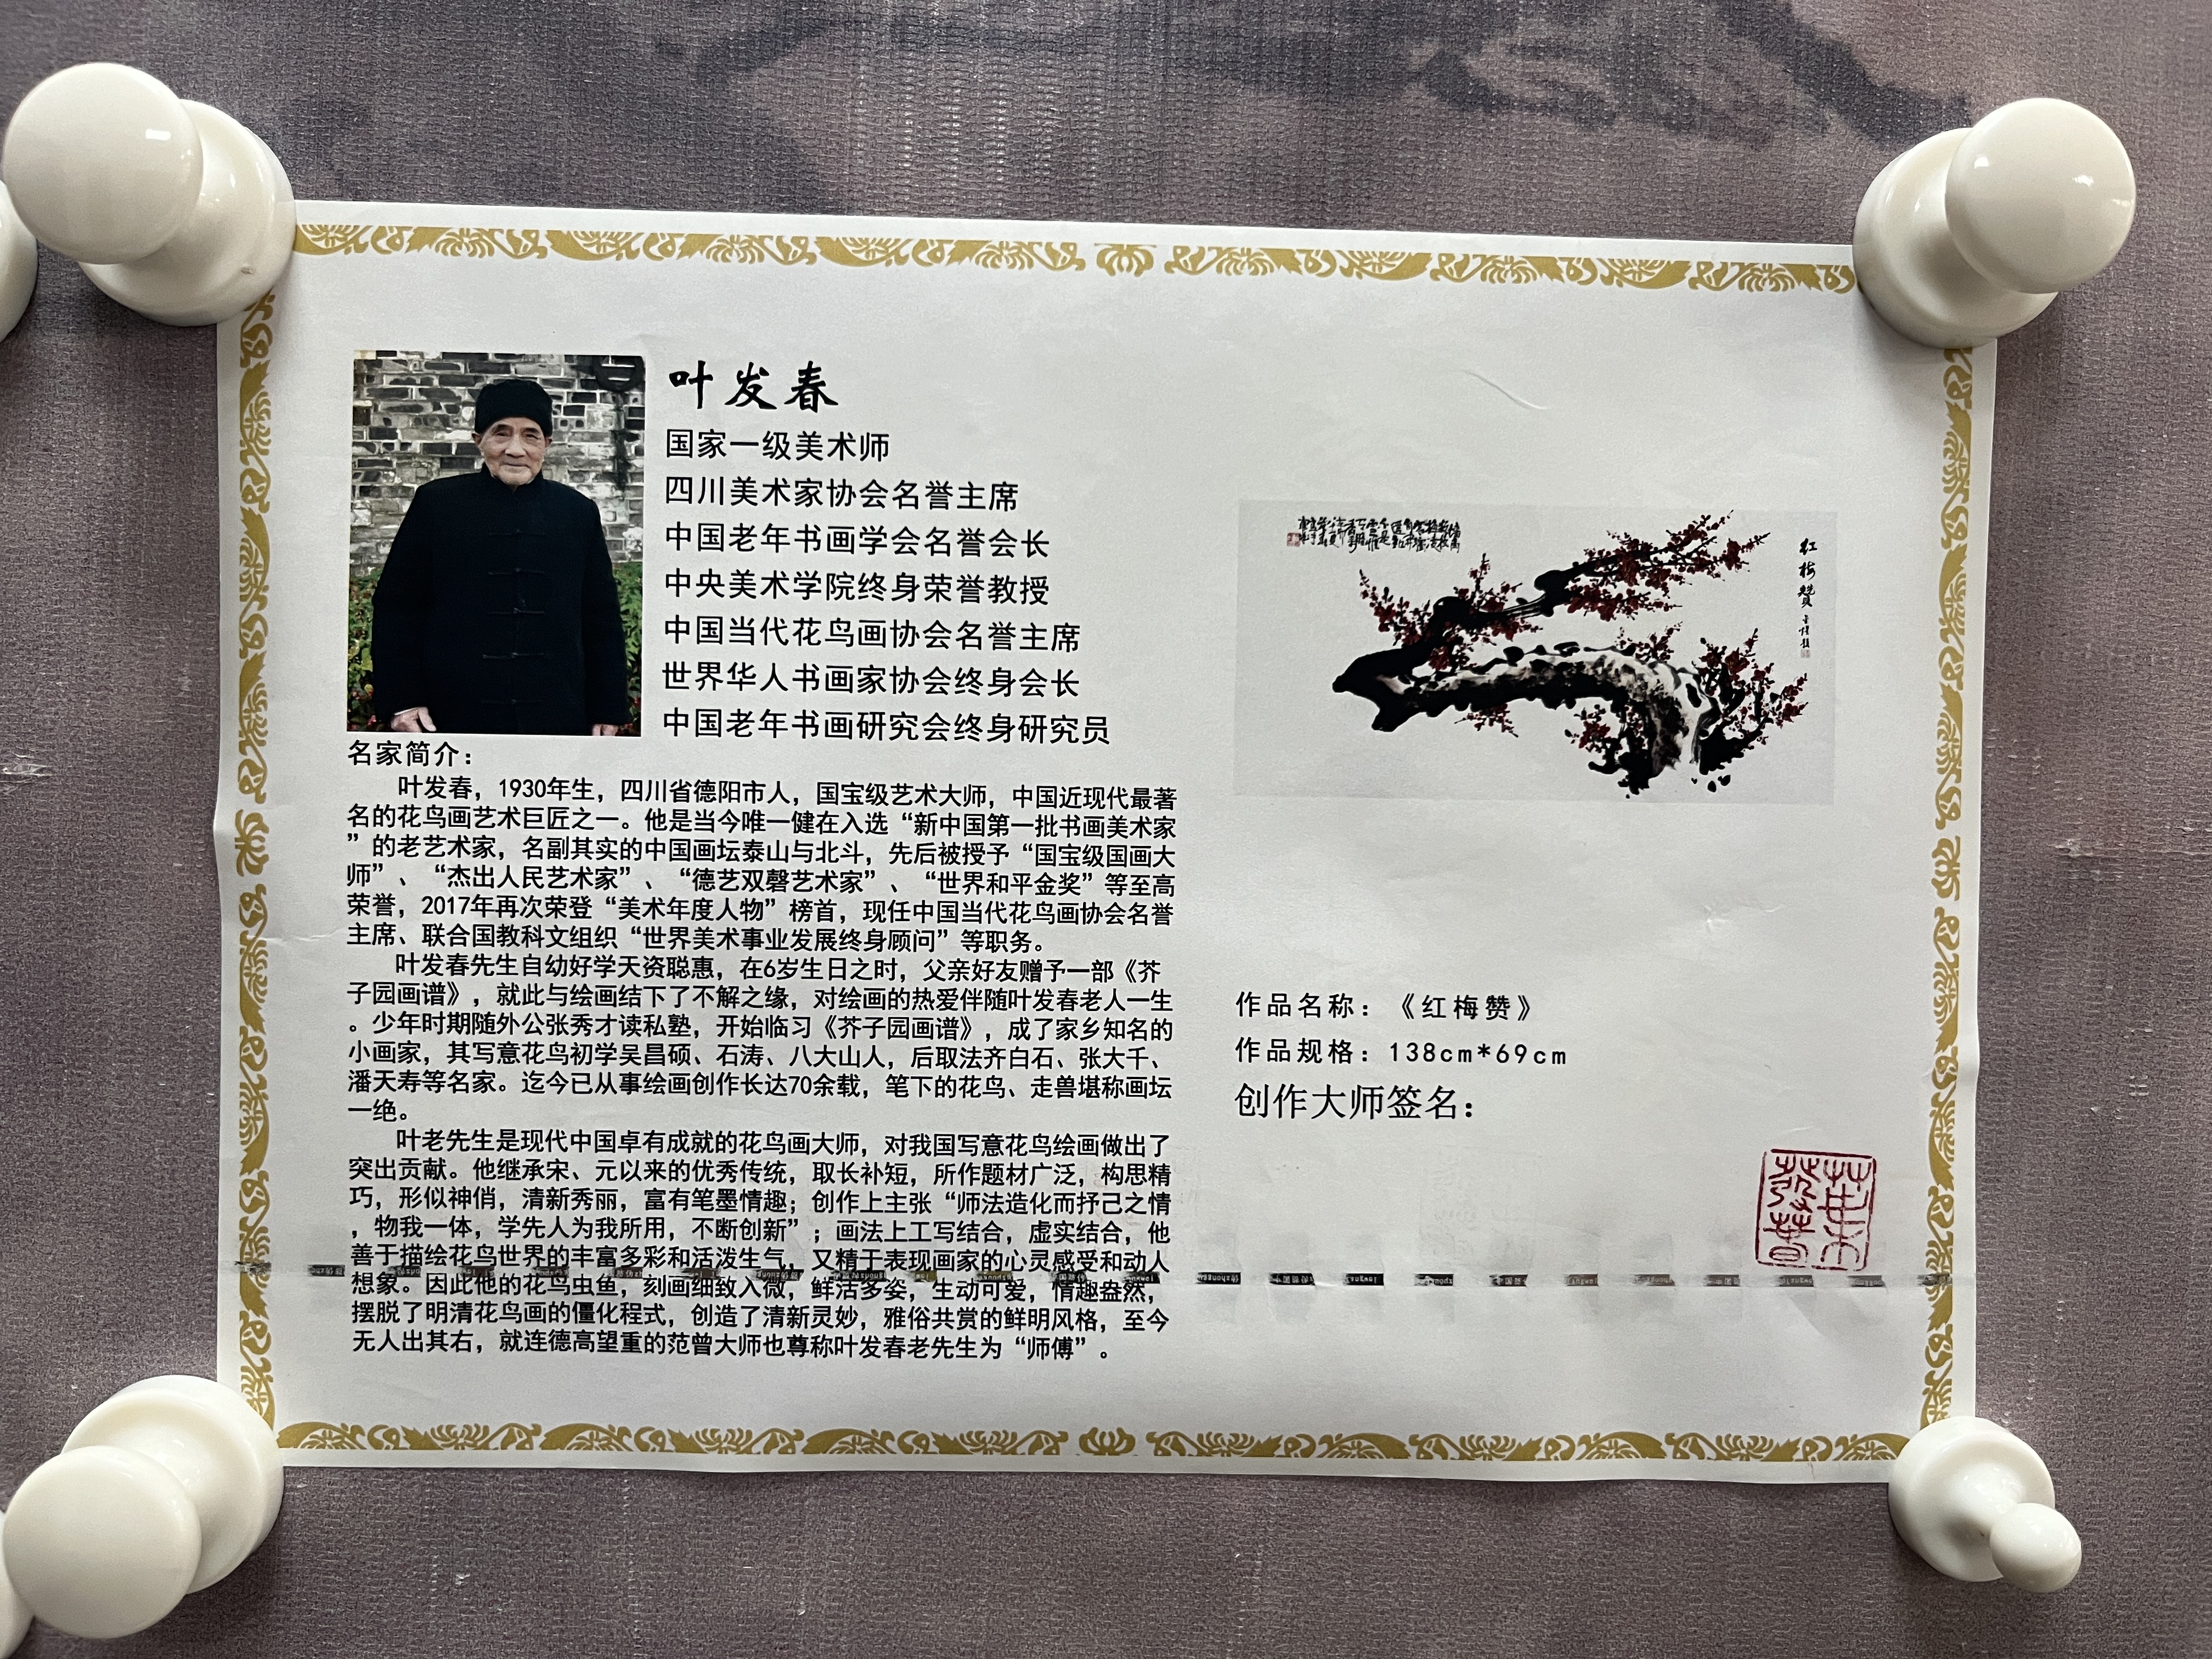 叶发春
国家一级美术师
四川美术家协会名誉主席
中国老年书画学会名誉会长
中央美术学院终身荣誉教授
中国当代花鸟画协会名誉主席
世界华人书画家协会终身会长
中国老年书画研究会终身研究员
名家简介：
叶发春，1930年生，四川省德阳市人，国宝级艺术大师，中国近现代最著
名的花鸟画艺术巨匠之一。他是当今唯一健在入选“新中国第一批书画美术家
”的老艺术家，名副其实的中国画坛泰山与北斗，先后被授予“国宝级国画大
师”、“杰出人民艺术家”、“德艺双磬艺术家”、“世界和平金奖”等至高
荣誉，2017年再次荣登“美术年度人物”榜首，现任中国当代花鸟画协会名誉
主席、联合国教科文组织“世界美术事业发展终身顾问”等职务。
叶发春先生自幼好学天资聪惠，在6岁生日之时，父亲好友赠予一部《芥
子园画谱》，就此与绘画结下了不解之缘，对绘画的热爱伴随叶发春老人一生
。少年时期随外公张秀才读私塾，开始临习《芥子园画谱》，成了家乡知名的
小画家，其写意花鸟初学吴昌硕、石涛、八大山人，后取法齐白石、张大千、
潘天寿等名家。迄今已从事绘画创作长达70余载，笔下的花鸟、走兽堪称画坛
一绝。
叶老先生是现代中国卓有成就的花鸟画大师，对我国写意花鸟绘画做出了
突出贡献。他继承宋、元以来的优秀传统，取长补短，所作题材广泛，构思精
巧，形似神俏，清新秀丽，富有笔墨情趣；创作上主张“师法造化而抒己之情
，物我一体，学先人为我所用，不断创新”；画法上工写结合，虚实结合，他
善于描绘花鸟世界的丰富多彩和活泼生气，又精于表现画家的心灵感受和动人
想象。因此他的花鸟虫鱼，刻画细致入微，鲜活多姿，生动可爱，情趣盎然，
摆脱了明清花鸟画的僵化程式，创造了清新灵妙，雅俗共赏的鲜明风格，至今
无人出其右，就连德高望重的范曾大师也尊称叶发春老先生为“师傅”。
红梅赞
作品名称：《红梅赞》
作品规格：138cm*69cm
创作大师签名：